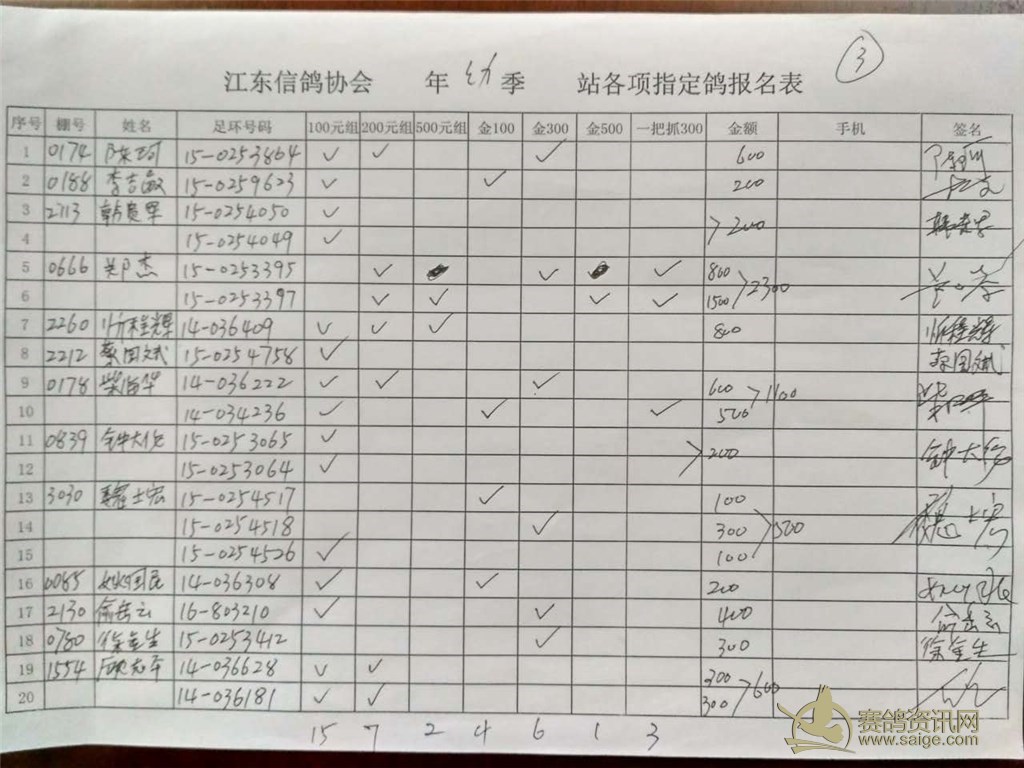 3
江东信鸽协会 年 幼 季 站各项指定鸽报名表
序号 棚号 姓名 足环号码 100元组 200元组 500元组 金100 金300 金500 一把抓300 金额 手机 签名
1 0174 陈珂 15-0253864 ✓ ✓ ✓ 600
2 0188 李吉敏 15-0259623 ✓ ✓ 200
3 2713 韩贵军 15-0254050 ✓ >200
4 15-0254049 ✓
5 0666 15-0253395 ✓ ✓ ✓ 800 >2300
6 15-0253397 ✓ ✓ ✓ ✓ 1500
7 2260 忻程辉 14-036409 ✓ ✓ ✓ 800 忻程辉
8 2212 蔡国斌 15-0254758 ✓ 蔡国斌
9 0178 柴 华 14-036222 ✓ ✓ ✓ 600 >1100
10 14-034236 ✓ ✓ ✓ 500
11 0839 钟大 15-0253065 ✓ >200 钟大
12 15-0253064 ✓
13 3030 魏士宏 15-0254517 ✓ 100
14 15-0254518 ✓ 300 >500
15 15-0254526 ✓ 100
16 0085 姚国民 14-036308 ✓ ✓ 200
17 2130 俞岳云 16-803210 ✓ ✓ 400 俞岳云
18 0780 徐金生 15-0253412 ✓ 300 徐金生
19 1554 14-036628 ✓ ✓ 300 >600
20 14-036181 ✓ ✓ 300
15 7 2 4 6 1 3
赛鸽资讯网
www.saige.com